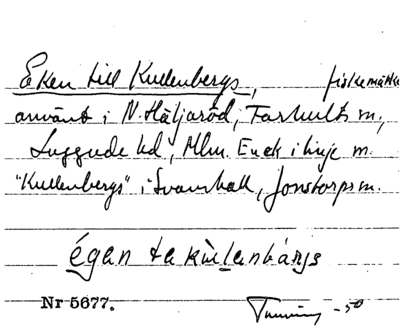 Eken till Kullenbergs, fiskemärke
använt i N. Häljaröd, Farhults sn.,
Luggude hd, Mlm. En ek i linje m.
"Kullenbergs" i Svanshall, Jonstorps sn.
égan ta kùlanbárgs
Nr 5677.
-50